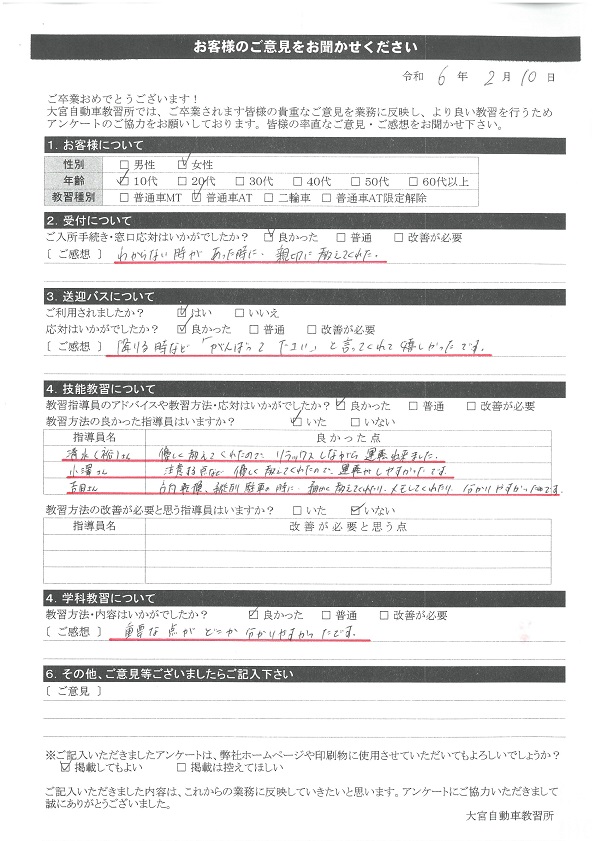 お客様のご意見をお聞かせください
令和 6 年 2 月 10 日
ご卒業おめでとうございます!
大宮自動車教習所では、ご卒業されます皆様の貴重なご意見を業務に反映し、より良い教習を行うため
アンケートのご協力をお願いしております。皆様の率直なご意見・ご感想をお聞かせ下さい。
1. お客様について
性別 □ 男性 ☑ 女性
年齢 ☑ 10代 □ 20代 □ 30代 □ 40代 □ 50代 □ 60代以上
教習種別 □ 普通車MT ☑ 普通車AT □ 二輪車 □ 普通車AT限定解除
2. 受付について
ご入所手続き・窓口応対はいかがでしたか? ☑ 良かった □ 普通 □ 改善が必要
[ ご感想 ] わからない時があった時に、親切に教えてくれた。
3. 送迎バスについて
ご利用されましたか? ☑ はい □ いいえ
応対はいかがでしたか? ☑ 良かった □ 普通 □ 改善が必要
[ ご感想 ] 降りる時など「がんばって下さい」と言ってくれて嬉しかったです。
4. 技能教習について
教習指導員のアドバイスや教習方法・応対はいかがでしたか? ☑ 良かった □ 普通 □ 改善が必要
教習方法の良かった指導員はいますか? ☑ いた □ いない
指導員名 良かった点
清水(裕)さん 優しく教えてくれたので、リラックスしながら運転出来ました。
小澤さん 注意する点など優しく教えてくれたので、運転がしやすかったです。
吉田さん 方向転換、縦列駐車の時に、細かく教えてくれたり、メモしてくれたり、分かりやすかったです。
教習方法の改善が必要と思う指導員はいますか? □ いた ☑ いない
指導員名 改善が必要と思う点
4. 学科教習について
教習方法・内容はいかがでしたか? ☑ 良かった □ 普通 □ 改善が必要
[ ご感想 ] 重要な点がどこか分かりやすかったです。
6. その他、ご意見等ございましたらご記入下さい
[ ご意見 ]
※ご記入いただきましたアンケートは、弊社ホームページや印刷物に使用させていただいてもよろしいでしょうか?
☑ 掲載してもよい □ 掲載は控えてほしい
ご記入いただきました内容は、これからの業務に反映していきたいと思います。アンケートにご協力いただきまして
誠にありがとうございました。
大宮自動車教習所